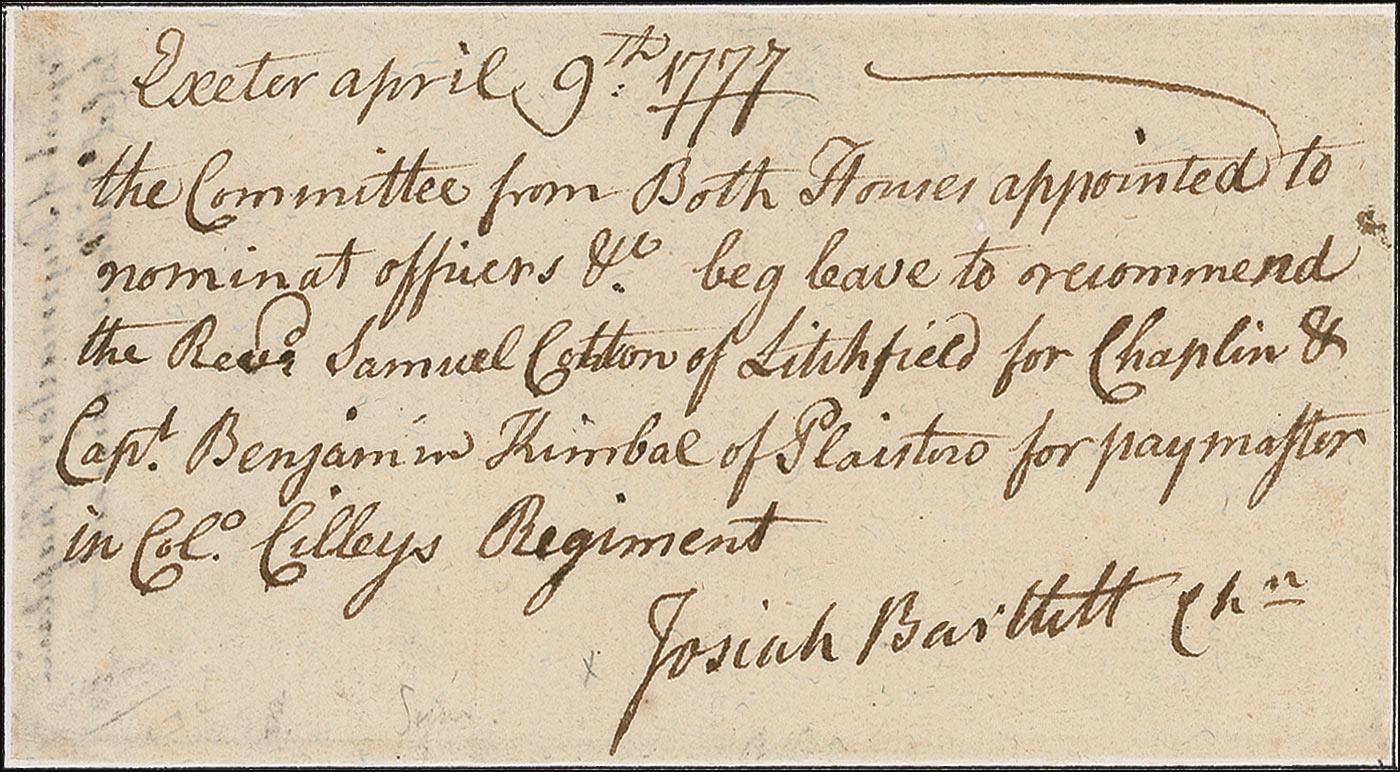 Exeter april 9th 1777
the Committee from Both Houses appointed to
nominat officers &c beg leave to recommend
the Revd Samuel Cotton of Litchfield for Chaplin &
Capt. Benjamin Kimbal of Plaistow for paymaster
in Colo. Cilleys Regiment
Josiah Bartlett Chn